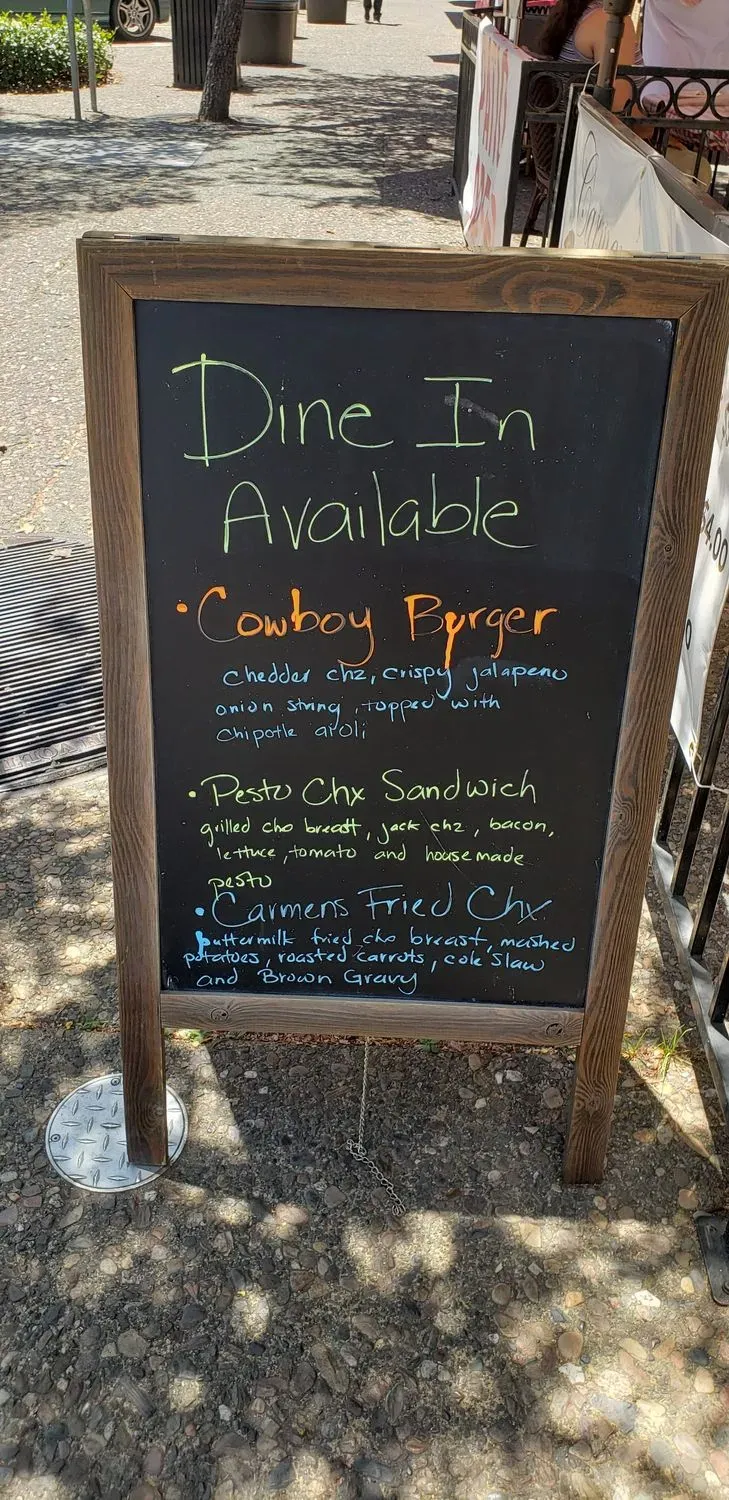 Dine In
Available
• Cowboy Burger
chedder chz, crispy jalapeno
onion string, topped with
Chipotle aioli
• Pesto Chx Sandwich
grilled chx breast, jack chz, bacon,
lettuce, tomato and housemade
pesto
• Carmens Fried Chx
buttermilk fried chx breast, mashed
potatoes, roasted carrots, cole slaw
and Brown Gravy